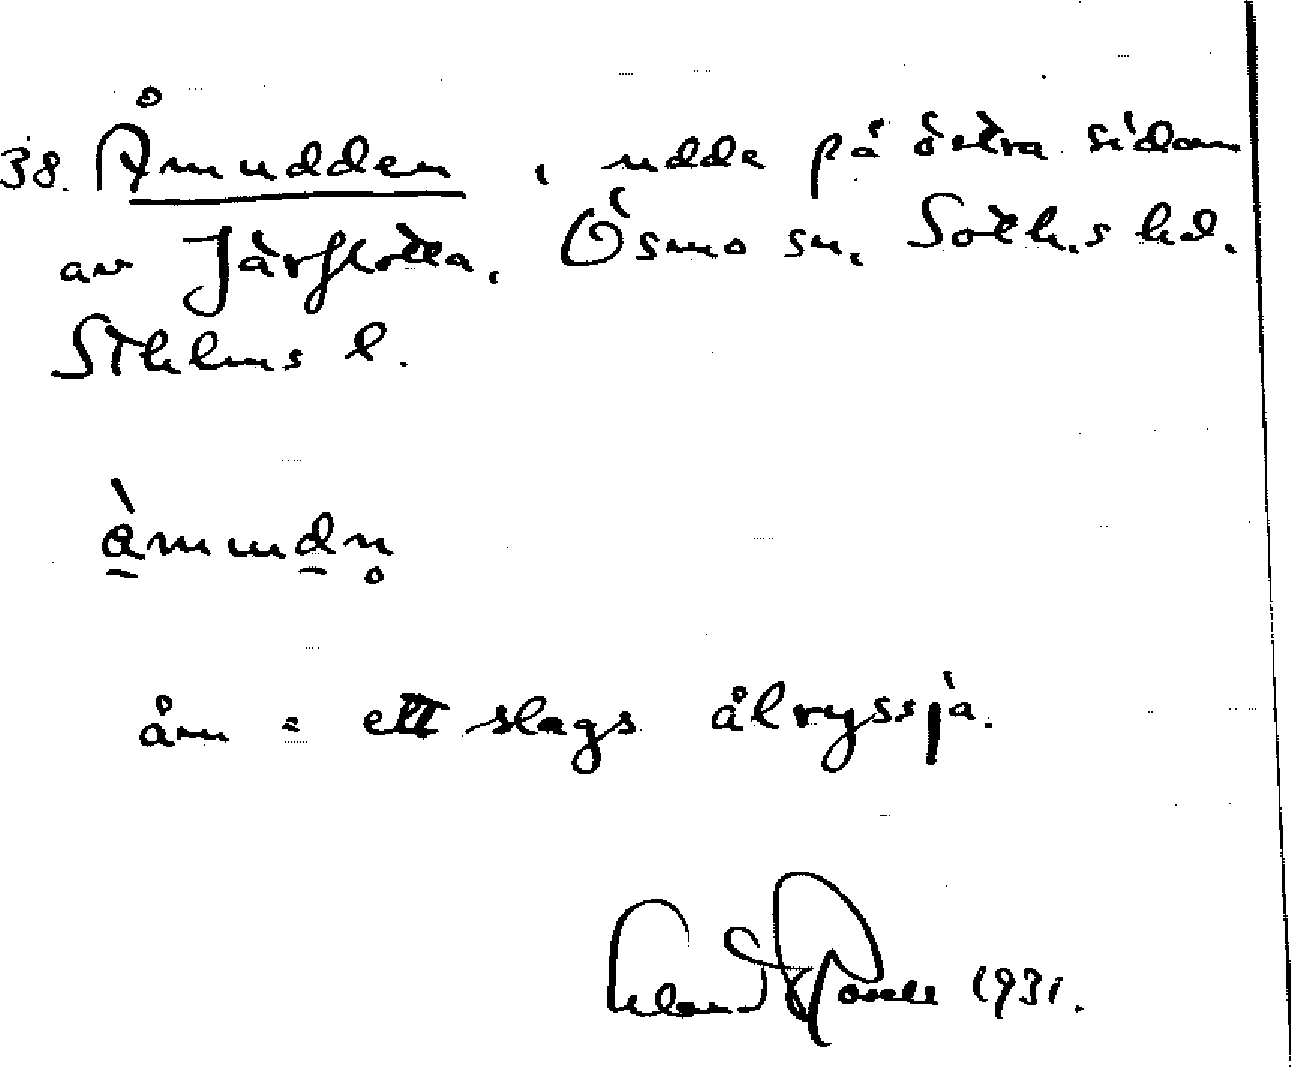 38. Åmudden, udda på östra sidan
av Järflotta, Ösmo sn, Soths hd.
Sthlms l.
åmudn̥
åm = ett slags ålryssja.
1931.